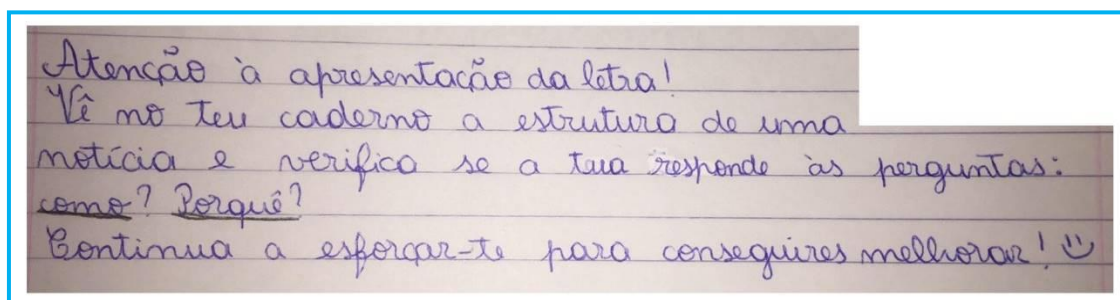 Atenção à apresentação da letra!
Vê no teu caderno a estrutura de uma
notícia e verifica se a tua responde às perguntas:
como? Porquê?
Continua a esforçar-te para conseguires melhorar! :)